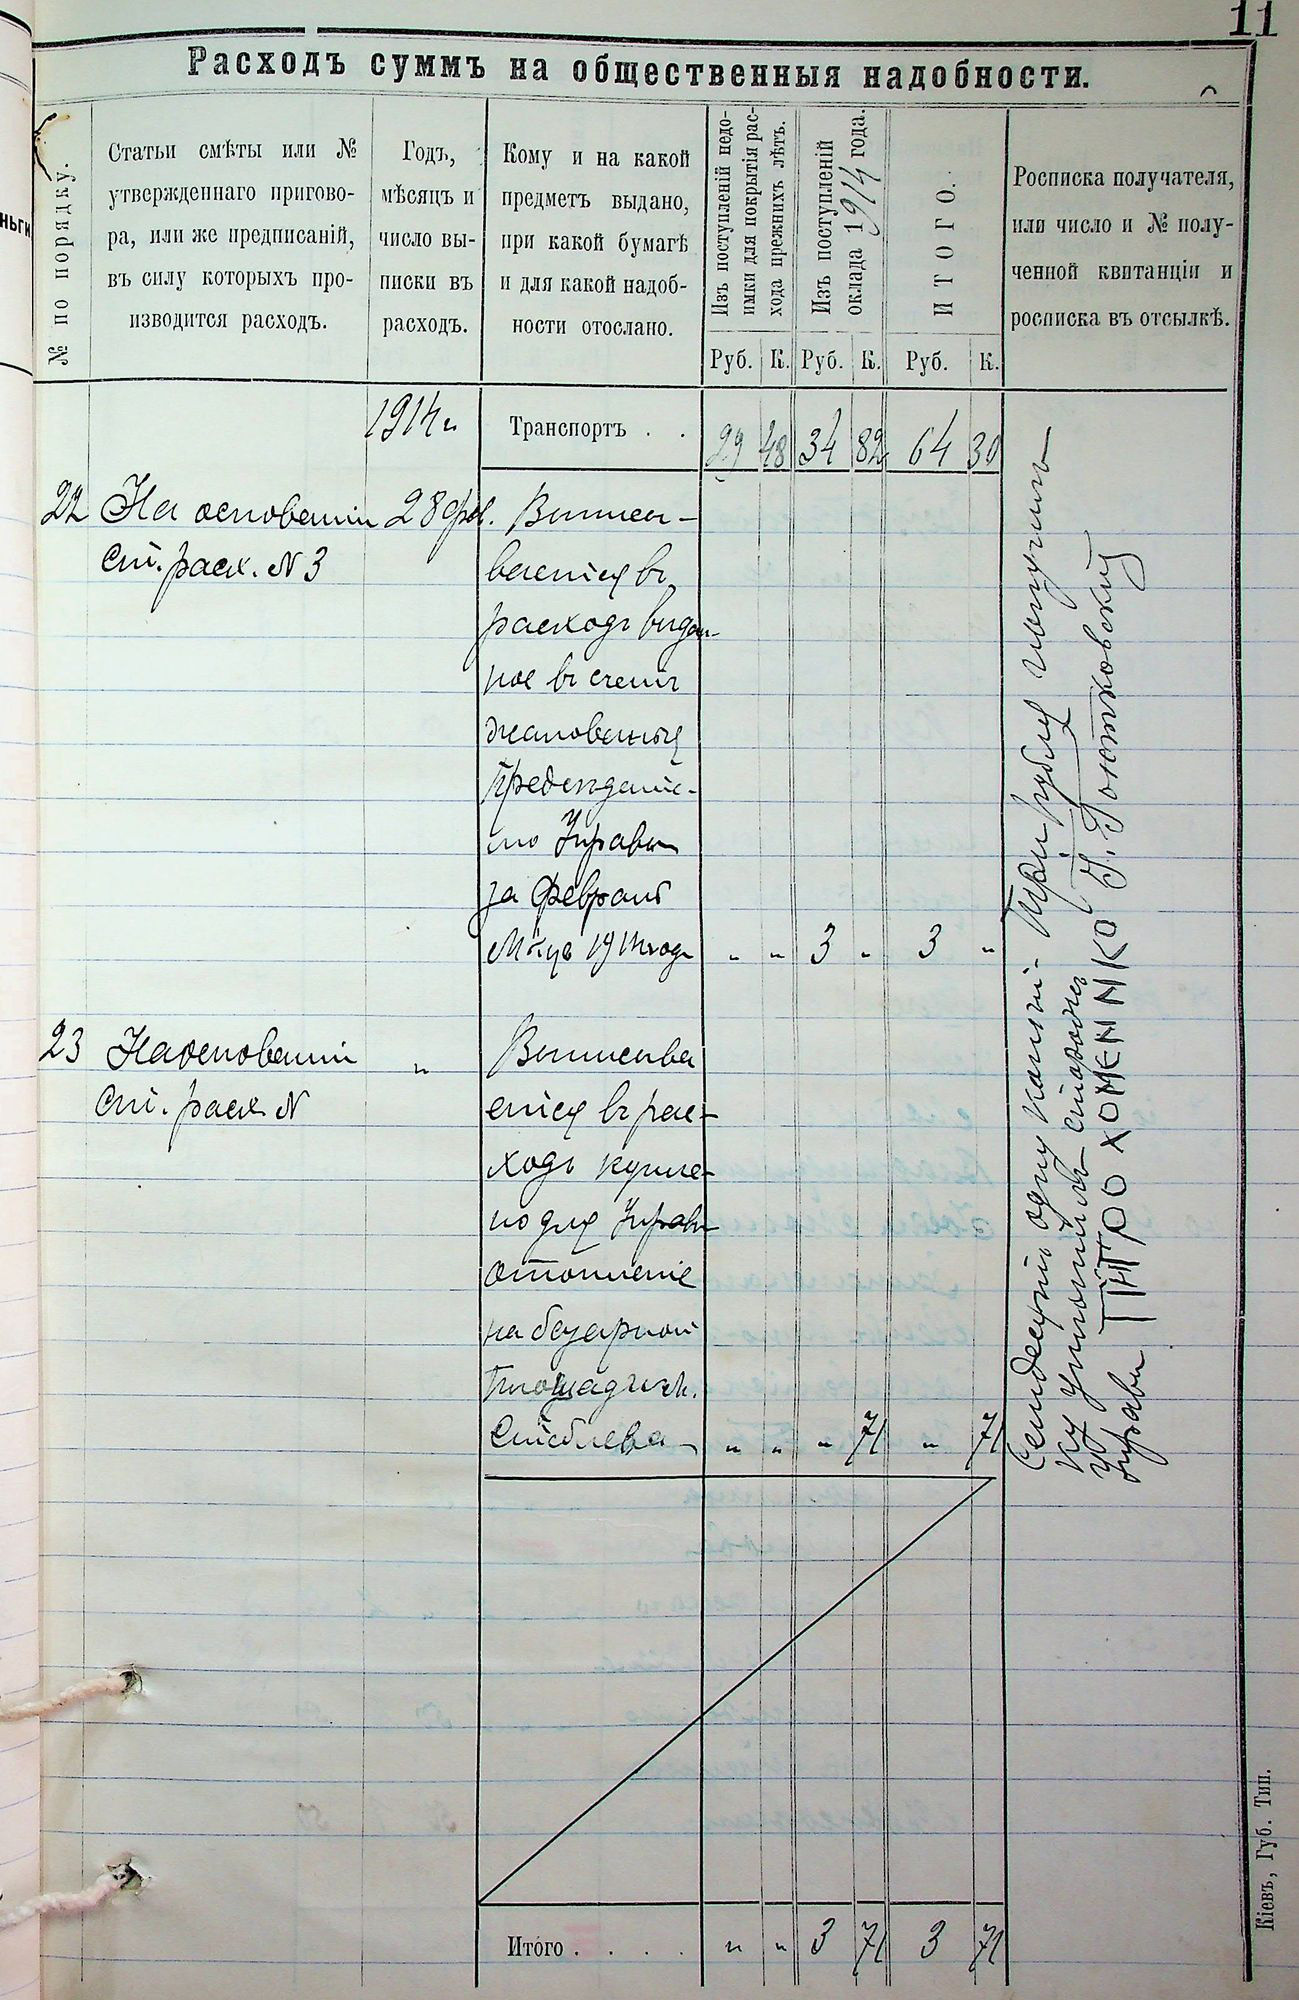 11
Расходъ суммъ на общественныя надобности.
№ по порядку.
Статьи смѣты или №
утвержденнаго пригово-
ра, или же предписаній,
въ силу которыхъ про-
изводится расходъ.
Годъ,
мѣсяцъ и
число вы-
писки въ
расходъ.
Кому и на какой
предметъ выдано,
при какой бумагѣ
и для какой надоб-
ности отослано.
Изъ поступленій недо-
имки для покрытія рас-
хода прежнихъ лѣтъ.
Изъ поступленій
оклада 1914 года.
ИТОГО.
Росписка получателя,
или число и № полу-
ченной квитанціи и
росписка въ отсылкѣ.
Руб. К. Руб. К. Руб. К.
1914 г. Транспортъ . . 29 48 34 82 64 30
22 На основаніи 28 фев. Выписы-
Ст. расх. № 3 вается въ
расходъ выдан-
ное въ счетъ
жалованья
Предсѣдате-
лю Управы
за Февраль
М-цъ 1914 годъ „ „ 3 „ 3 „
Три рубля получилъ
23 На основаніи „ Выписыва
Ст. расх. № ется въ рас-
ходъ купле-
но для Управы
отопленіе
на базарной
площади м.
Стеблева „ „ „ 71 „ 71
Семдесятъ одну копѣй-
ку уплотилъ сторожъ
управы ПЙТРО ХОМЕННКО
Итого . . . . „ „ 3 71 3 71
Кіевъ, Губ. Тип.
ньги